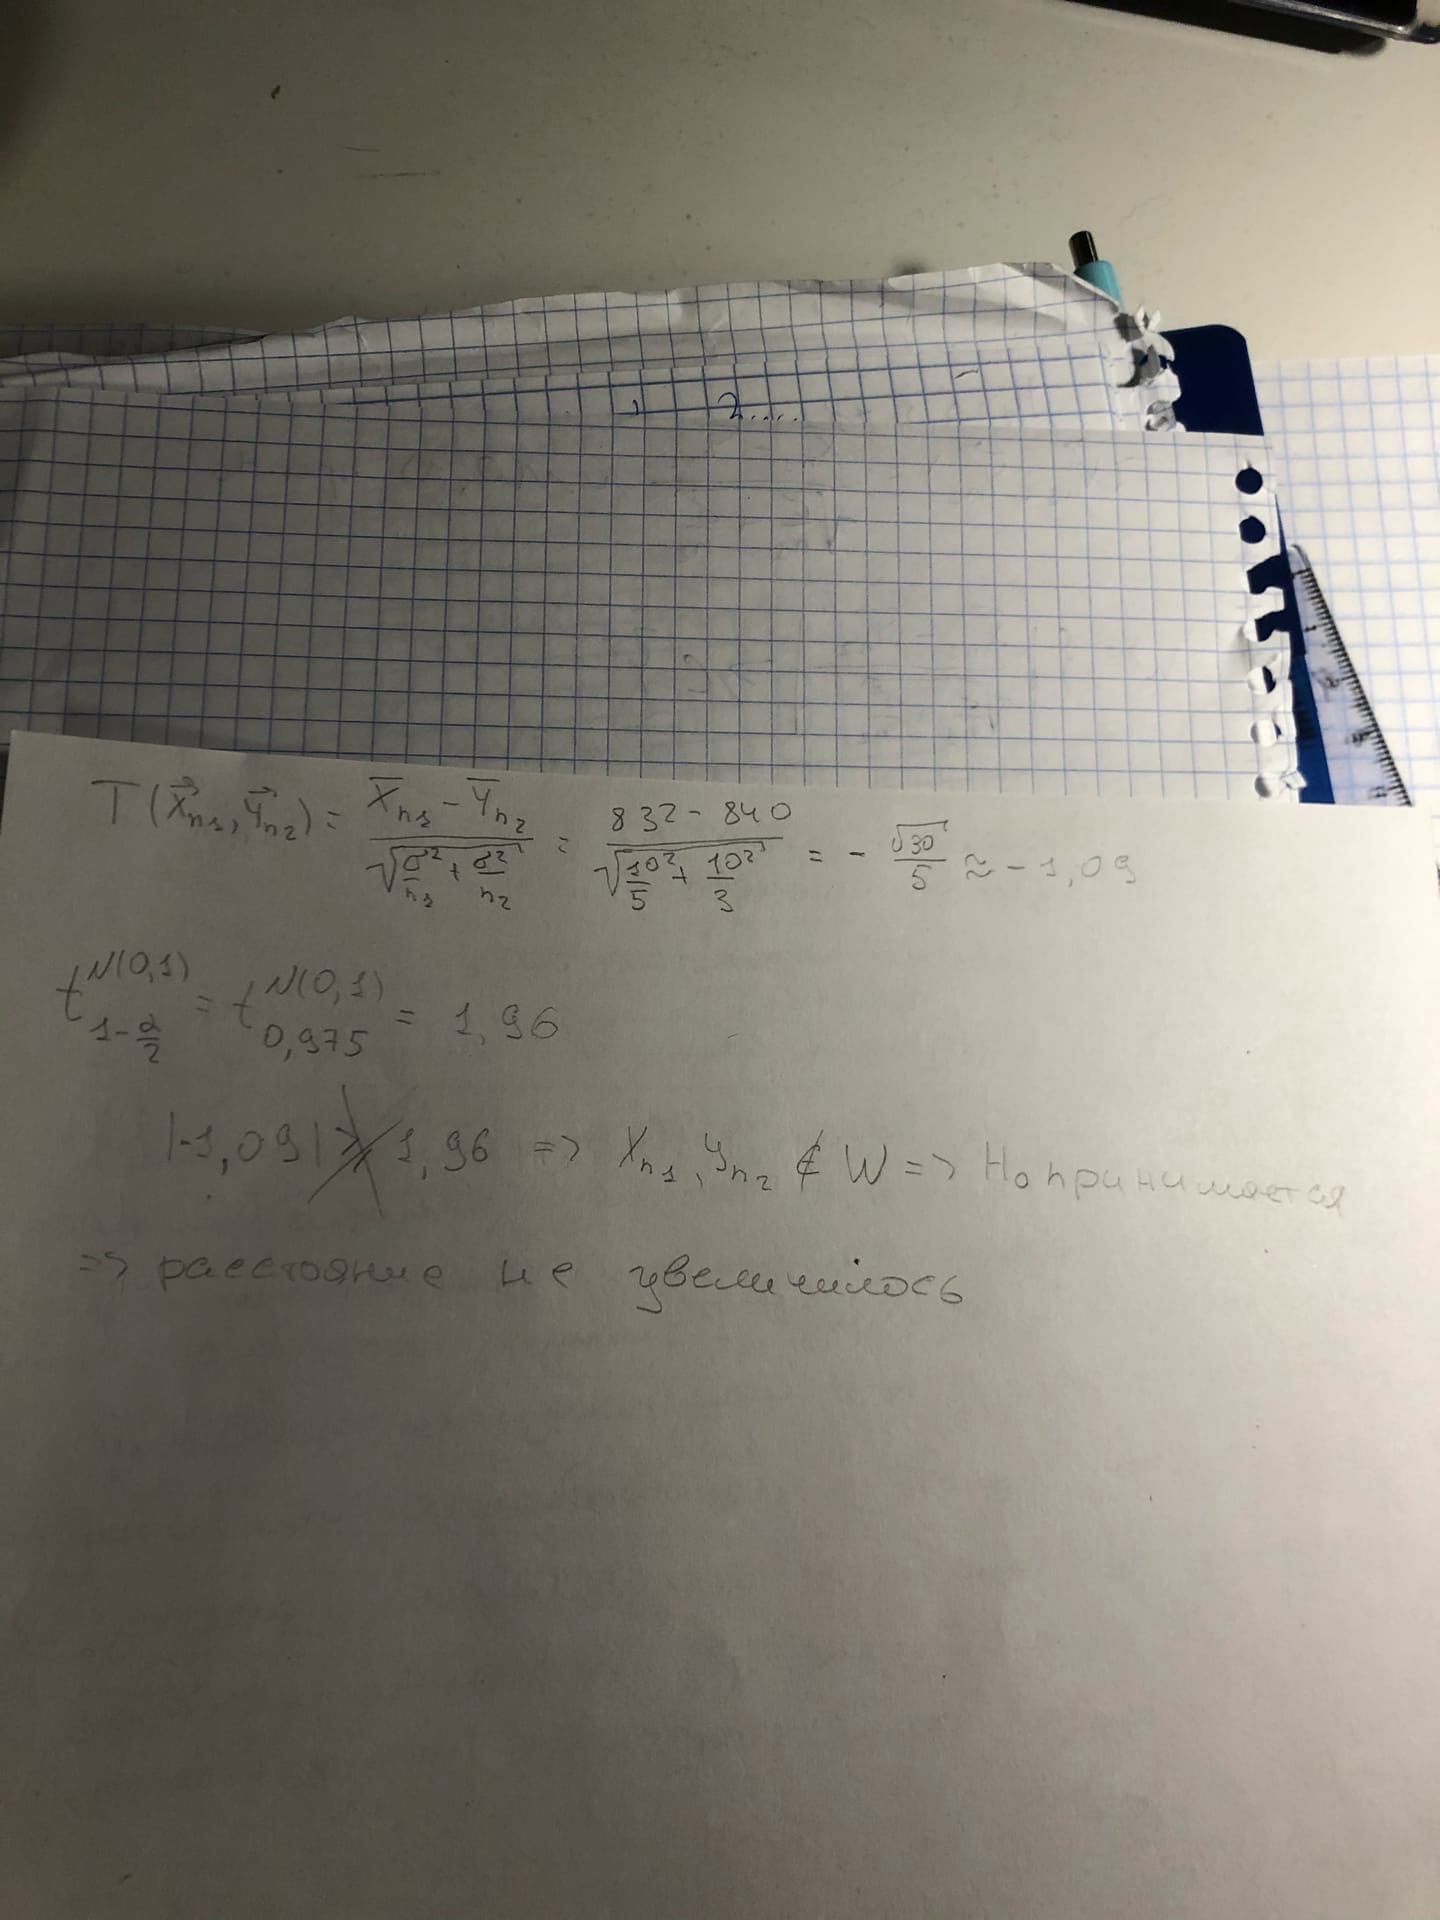 2....
T(X⃗n₁, Y⃗n₂) = (X̄n₁ - Ȳn₂) / √(σ²/n₁ + σ²/n₂) = (832 - 840) / √(10²/5 + 10²/3) = - √30/5 ≈ - 1,09
t^N(0,1)_{1-α/2} = t^N(0,1)_{0,975} = 1,96
|-1,09| ≯ 1,96 => Xn₁, Yn₂ ∉ W => H₀ принимается
=> расстояние не увеличилось